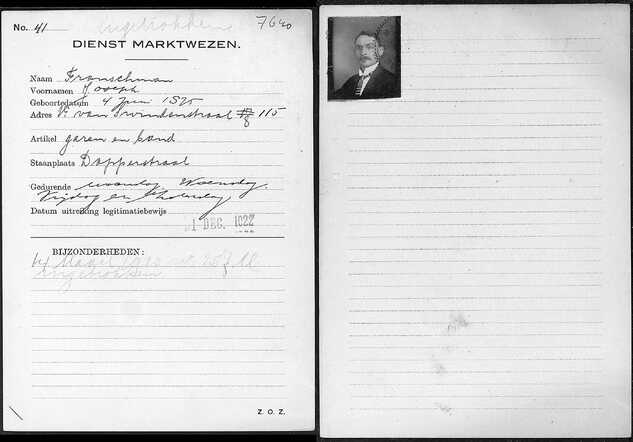 No. 41 Ingetrokken 7640
DIENST MARKTWEZEN.
Naam Franschman
Voornamen Joseph
Geboortedatum 4 Juni
Adres v. Swindenstraat 115
Artikel garen en band
Staanplaats Dapperstraat
Gedurende maandag, Woensdag,
Vrijdag en Zaterdag
Datum uitreiking legitimatiebewijs
1 DEC. 1922
BIJZONDERHEDEN:
ingetrokken
Z. O. Z.